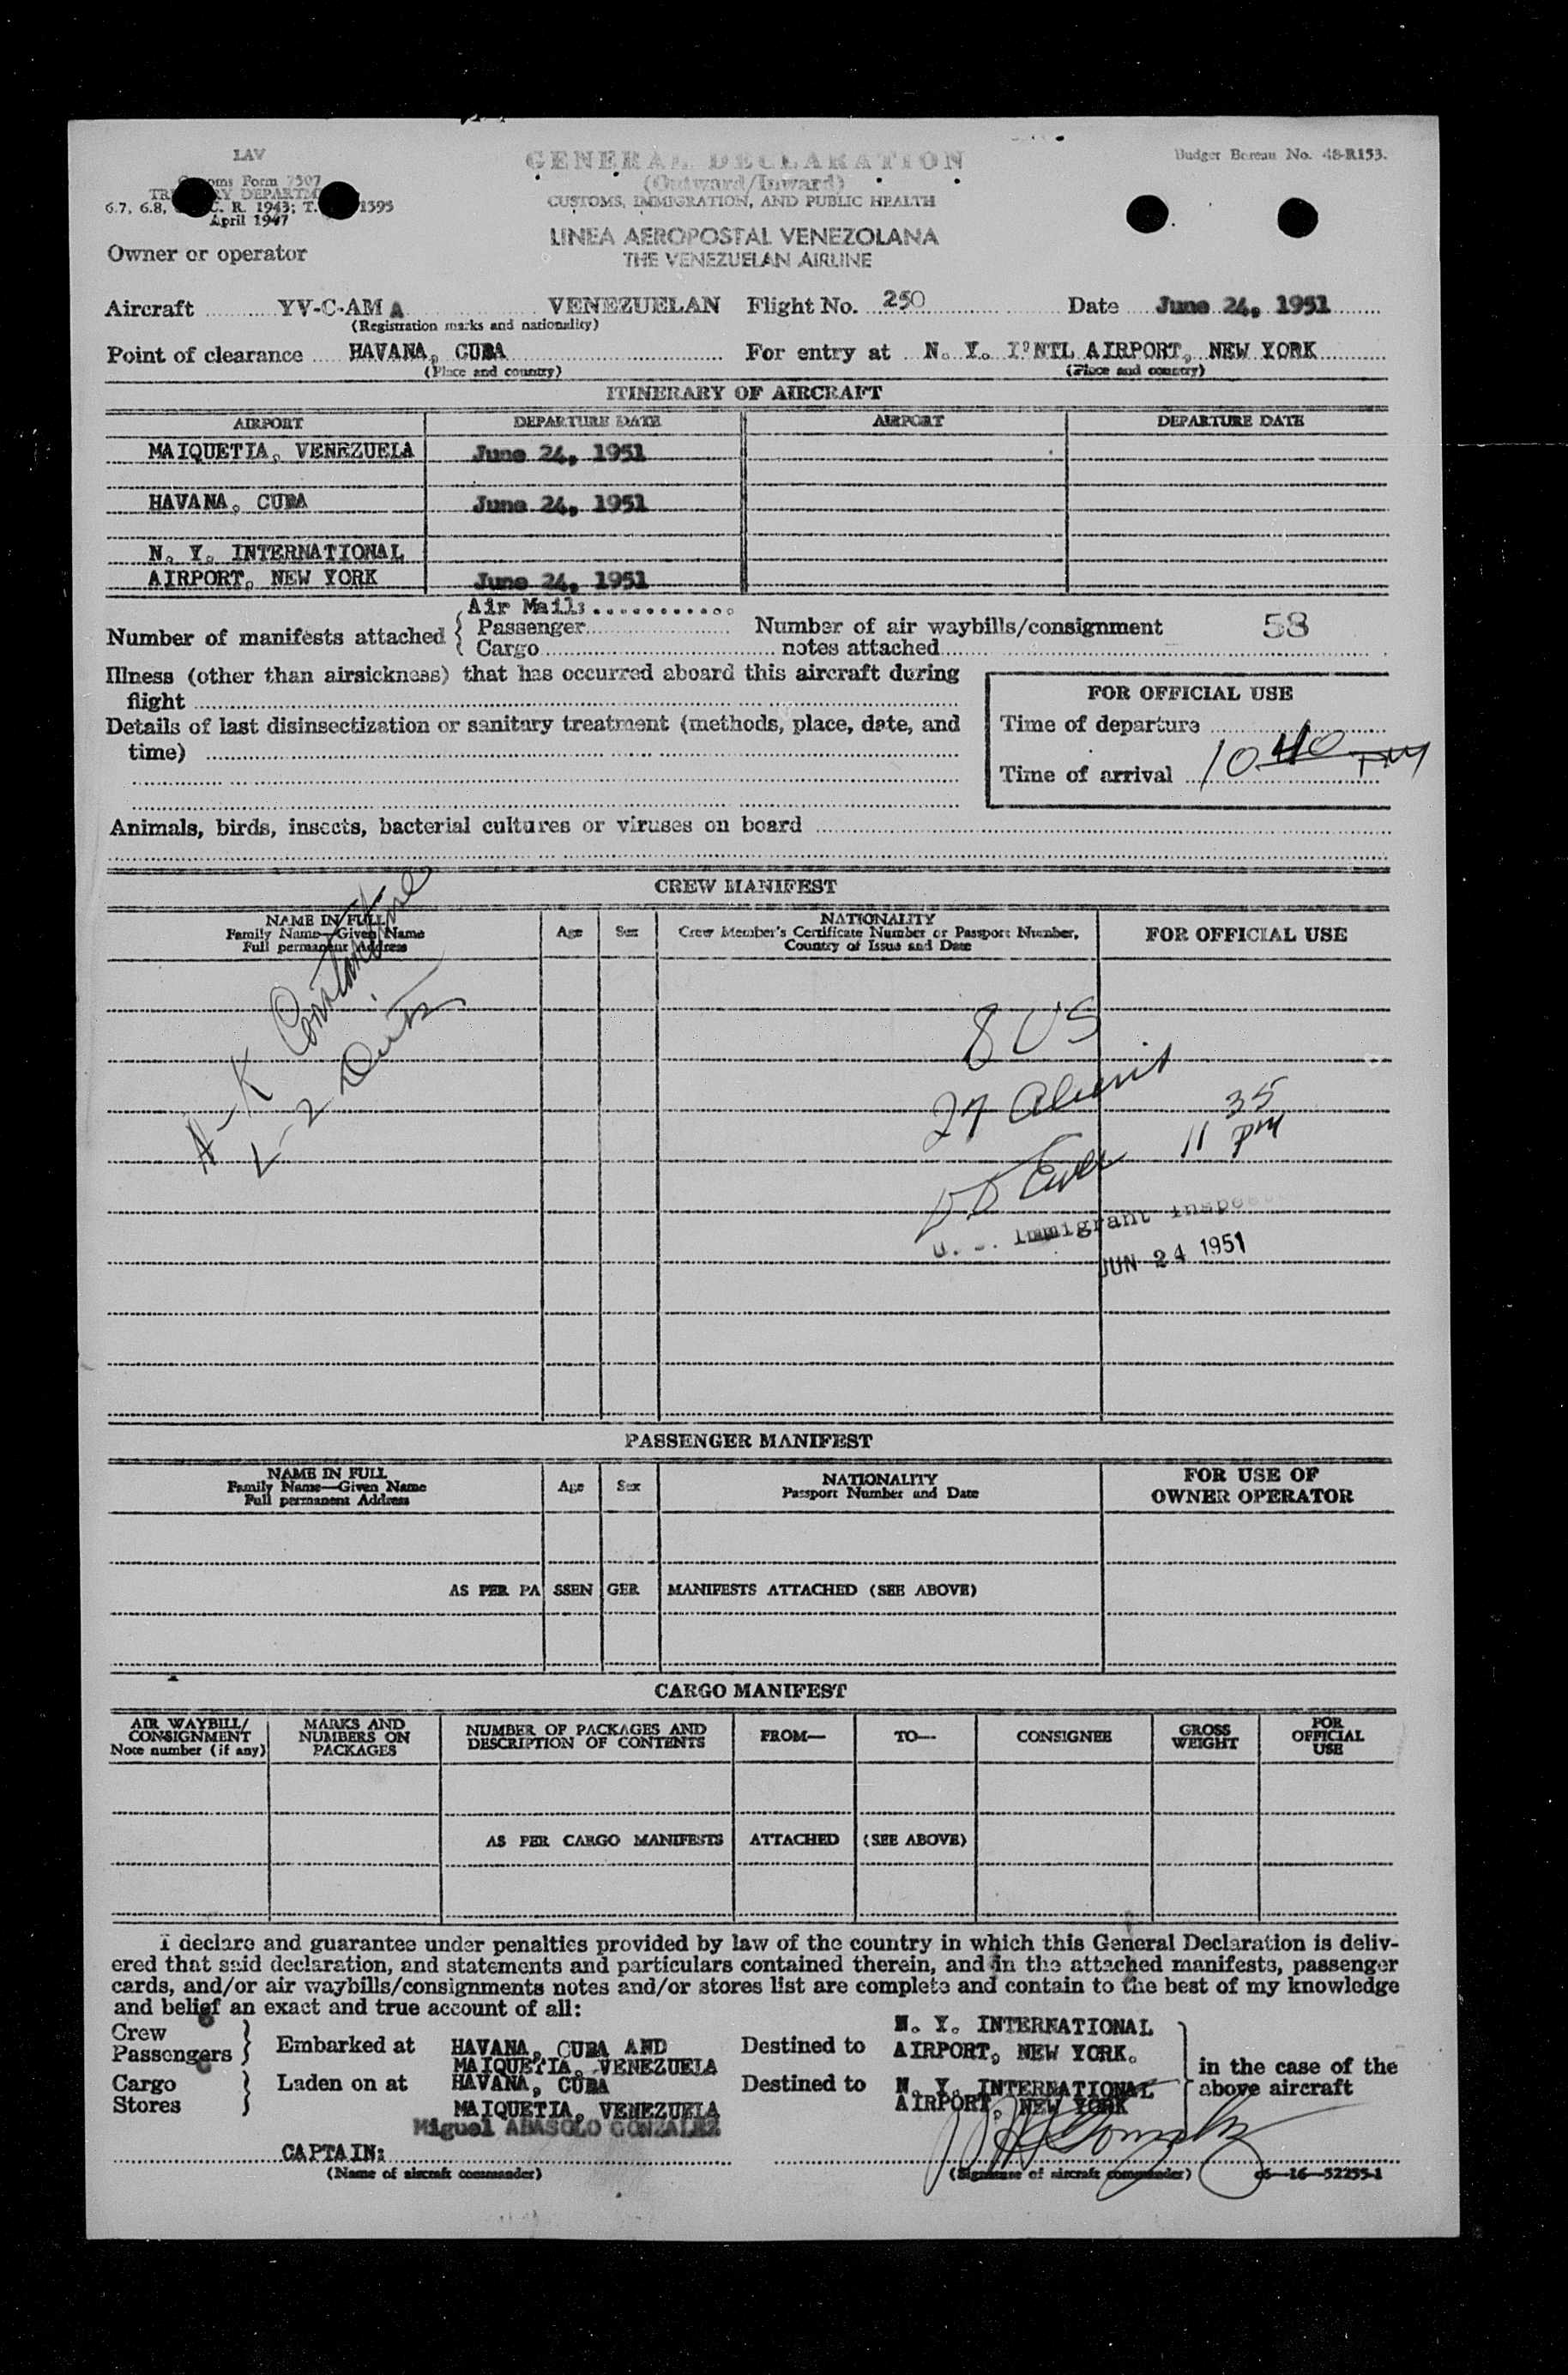 LAV
GENERAL DECLARATION
(Outward/Inward)
CUSTOMS, IMMIGRATION, AND PUBLIC HEALTH
Budget Bureau No. 48-R153.
Customs Form 7507
TREASURY DEPARTMENT
6.7, 6.8, C. R. 1943; T. 1395
April 1947
LINEA AEROPOSTAL VENEZOLANA
THE VENEZUELAN AIRLINE
Owner or operator
Aircraft YV-C-AM A VENEZUELAN Flight No. 250 Date June 24, 1951
(Registration marks and nationality)
Point of clearance HAVANA, CUBA For entry at N. Y. I'NTL AIRPORT, NEW YORK
(Place and country) (Place and country)
ITINERARY OF AIRCRAFT
AIRPORT DEPARTURE DATE AIRPORT DEPARTURE DATE
MAIQUETIA, VENEZUELA June 24, 1951
HAVANA, CUBA June 24, 1951
N. Y. INTERNATIONAL
AIRPORT, NEW YORK June 24, 1951
Number of manifests attached { Air Mails
Passenger
Cargo
Number of air waybills/consignment
notes attached 58
Illness (other than airsickness) that has occurred aboard this aircraft during
flight
Details of last disinsectization or sanitary treatment (methods, place, date, and
time)
FOR OFFICIAL USE
Time of departure
Time of arrival 10 40 PM
Animals, birds, insects, bacterial cultures or viruses on board
CREW MANIFEST
NAME IN FULL
Family Name—Given Name
Full permanent Address
Age
Sex
NATIONALITY
Crew Member's Certificate Number or Passport Number,
Country of Issue and Date
FOR OFFICIAL USE
A-K Constantine
L-Z
8 US
27 Aliens
11 35 PM
U. S. Immigrant Inspe
JUN 24 1951
PASSENGER MANIFEST
NAME IN FULL
Family Name—Given Name
Full permanent Address
Age
Sex
NATIONALITY
Passport Number and Date
FOR USE OF
OWNER OPERATOR
AS PER PASSENGER MANIFESTS ATTACHED (SEE ABOVE)
CARGO MANIFEST
AIR WAYBILL/
CONSIGNMENT
Note number (if any)
MARKS AND
NUMBERS ON
PACKAGES
NUMBER OF PACKAGES AND
DESCRIPTION OF CONTENTS
FROM—
TO—
CONSIGNEE
GROSS
WEIGHT
FOR
OFFICIAL
USE
AS PER CARGO MANIFESTS ATTACHED (SEE ABOVE)
I declare and guarantee under penalties provided by law of the country in which this General Declaration is deliv-
ered that said declaration, and statements and particulars contained therein, and in the attached manifests, passenger
cards, and/or air waybills/consignments notes and/or stores list are complete and contain to the best of my knowledge
and belief an exact and true account of all:
Crew
Passengers } Embarked at HAVANA, CUBA AND
MAIQUETIA, VENEZUELA
Destined to N. Y. INTERNATIONAL
AIRPORT, NEW YORK.
Cargo
Stores } Laden on at HAVANA, CUBA
MAIQUETIA, VENEZUELA
Destined to N. Y. INTERNATIONAL
AIRPORT, NEW YORK
} in the case of the
above aircraft
Miguel ABASOLO GONZALEZ
CAPTAIN:
(Name of aircraft commander)
(Signature of aircraft commander) c6—16—52255-1